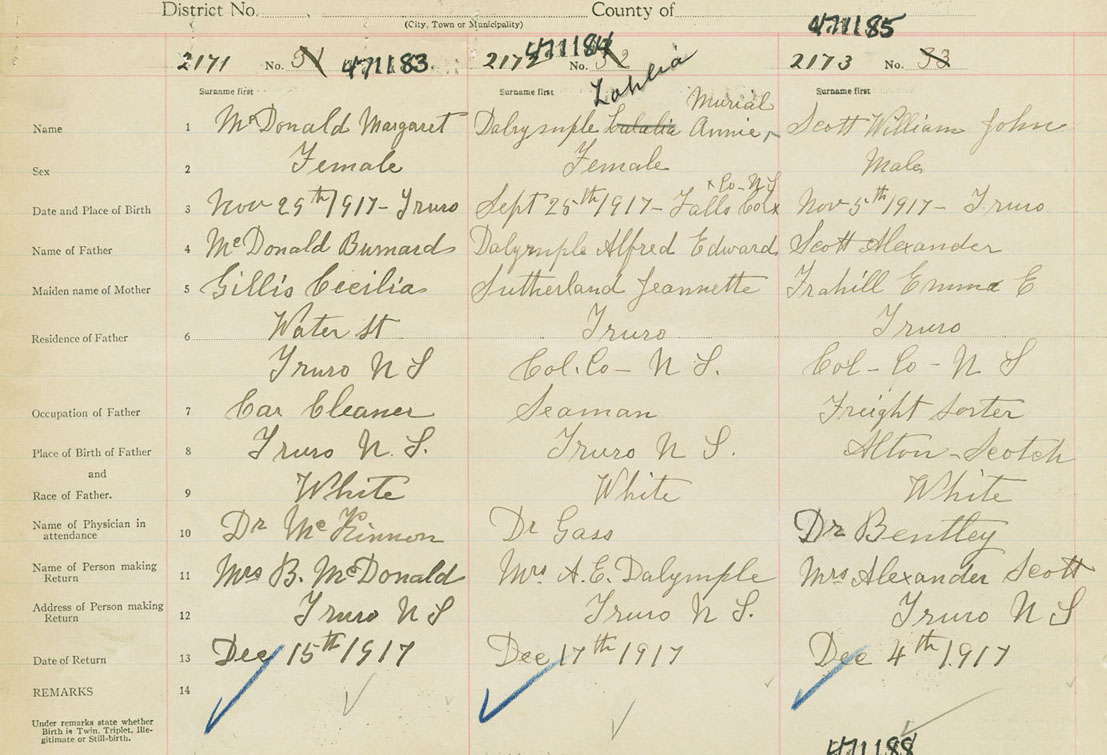 District No. County of
(City, Town or Municipality)
471185
471184
2171 No. 31 471183 2172 No. 32 2173 No. 33
Surname first Surname first Surname first
Murial
Name 1 McDonald Margaret Dalrymple Annie Scott William John
Sex 2 Female Female Male
x Co - N S
Date and Place of Birth 3 Nov 29th 1917 - Truro Sept 25th 1917 - Falls Col x Nov 5th 1917 - Truro
Name of Father 4 McDonald Burnard Dalymple Alfred Edward Scott Alexander
Maiden name of Mother 5 Gillis Cecilia Sutherland Jeannette Trahill Emma E
Residence of Father 6 Water St Truro Truro
Truro N S Col. Co - N S. Col - Co - N S
Occupation of Father 7 Car Cleaner Seaman Freight Sorter
Place of Birth of Father 8 Truro N. S. Truro N S. Alton - Scotch
and
Race of Father. 9 White White White
Name of Physician in
attendance 10 Dr McKinnon Dr Gass Dr Bentley
Name of Person making
Return 11 Mrs B. McDonald Mrs A. E. Dalymple Mrs Alexander Scott
Address of Person making
Return 12 Truro N S Truro N S. Truro N S
Date of Return 13 Dec 15th 1917 Dec 17th 1917 Dec 4th 1917
REMARKS 14
Under remarks state whether
Birth is Twin, Triplet, Ille-
gitimate or Still-birth.
471188